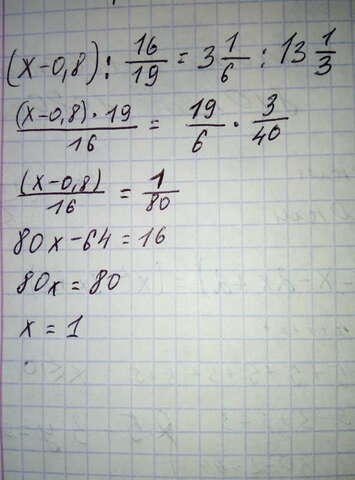 (x-0,8) : 16/19 = 3 1/6 : 13 1/3
(x-0,8) · 19/16 = 19/6 · 3/40
(x-0,8)/16 = 1/80
80x-64=16
80x=80
x=1